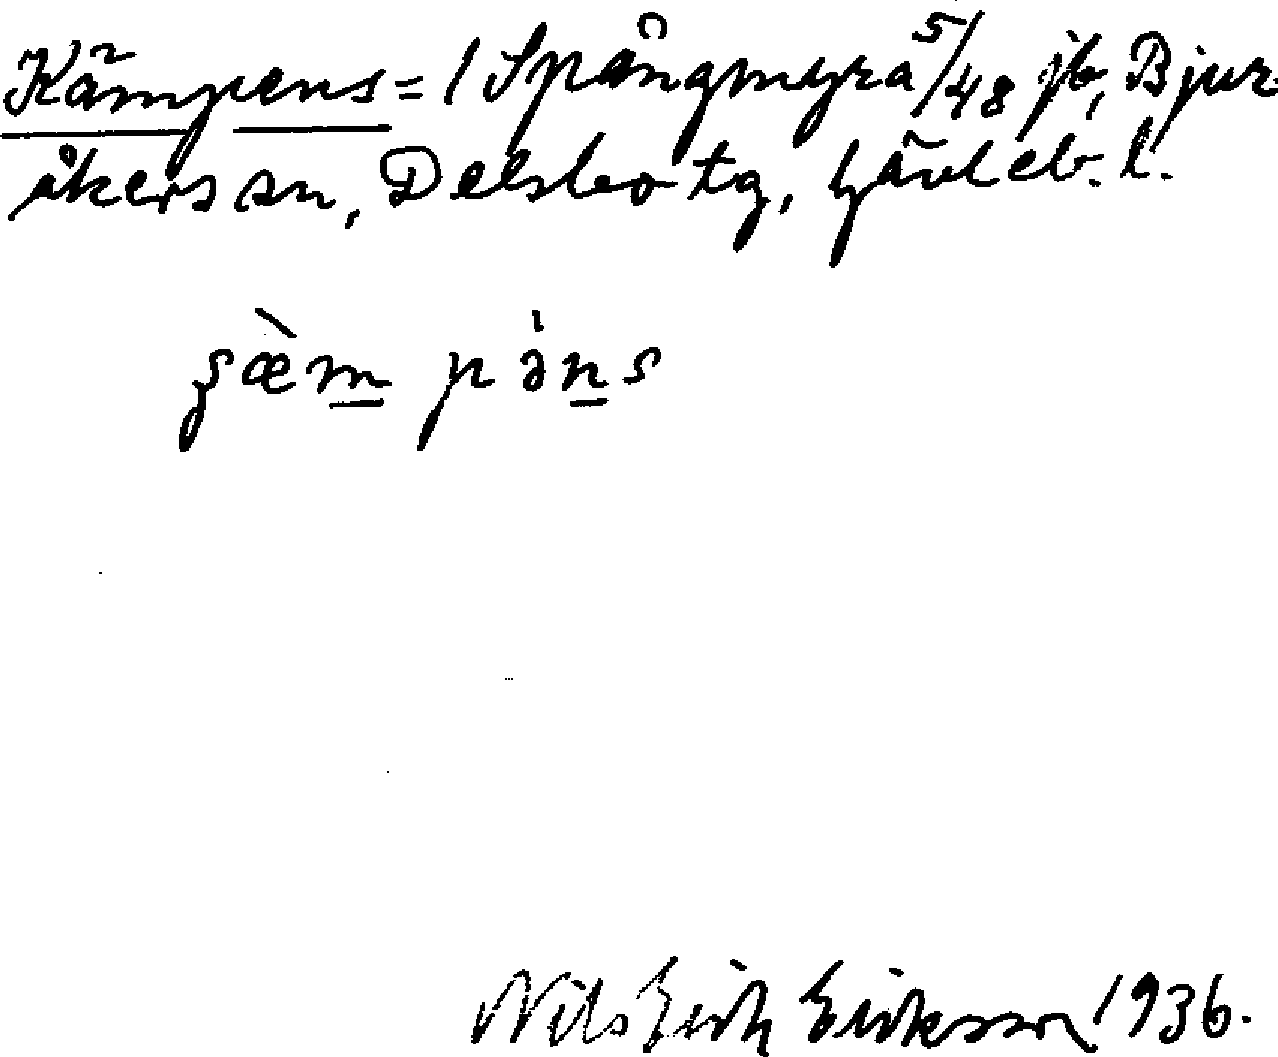 Kämpens = 1 Spångmyra 5/48 jb, Bjur-
åkers sn, Delsbo tg, Gävleb. l.
Nils Erik Eriksson 1936.